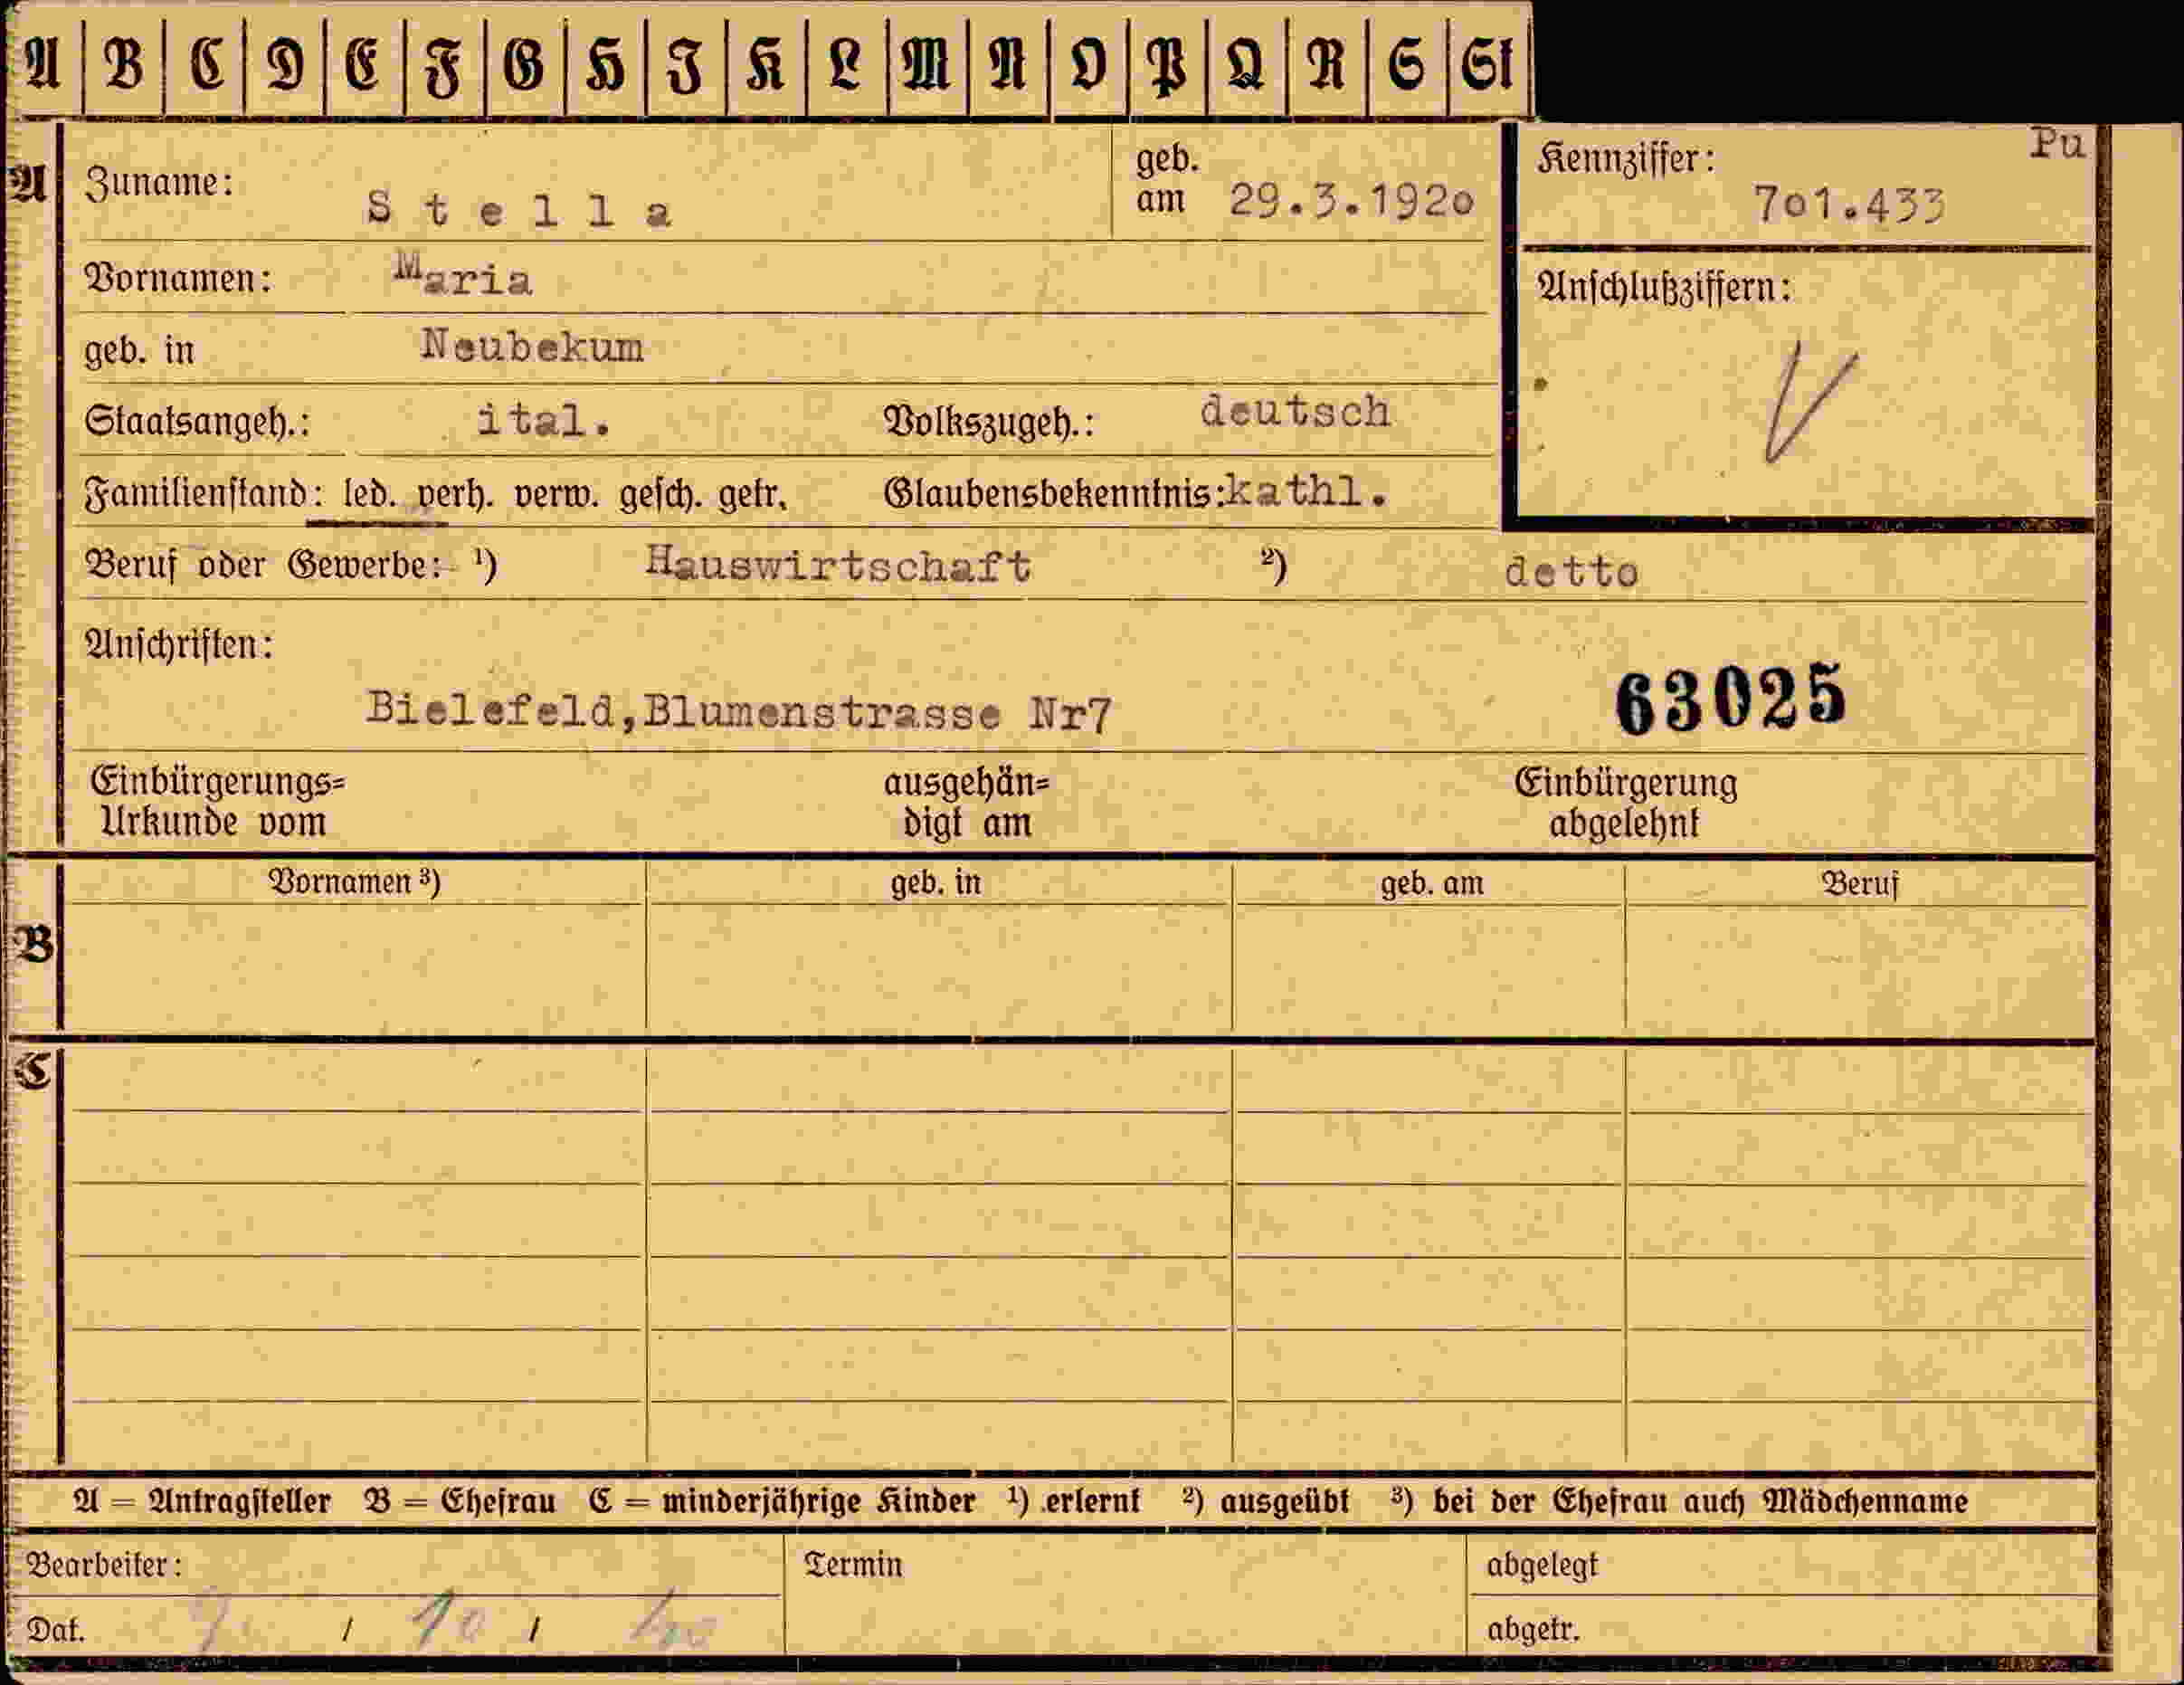 A B C D E F G H I K L M N O P Q R S St
Pu
A Zuname: Stella geb. am 29.3.1920 Kennziffer: 701.433
Vornamen: Maria Anschlußziffern:
geb. in Neubekum
Staatsangeh.: ital. Volkszugeh.: deutsch
Familienstand: led. verh. verw. gesch. getr. Glaubensbekenntnis: kathl.
Beruf oder Gewerbe: 1) Hauswirtschaft 2) detto
Anschriften:
Bielefeld,Blumenstrasse Nr7 63025
Einbürgerungs= ausgehän= Einbürgerung
Urkunde vom digt am abgelehnt
Vornamen 3) geb. in geb. am Beruf
B
C
A = Antragsteller B = Ehefrau C = minderjährige Kinder 1) erlernt 2) ausgeübt 3) bei der Ehefrau auch Mädchenname
Bearbeiter: Termin abgelegt
Dat. / 10 / abgetr.